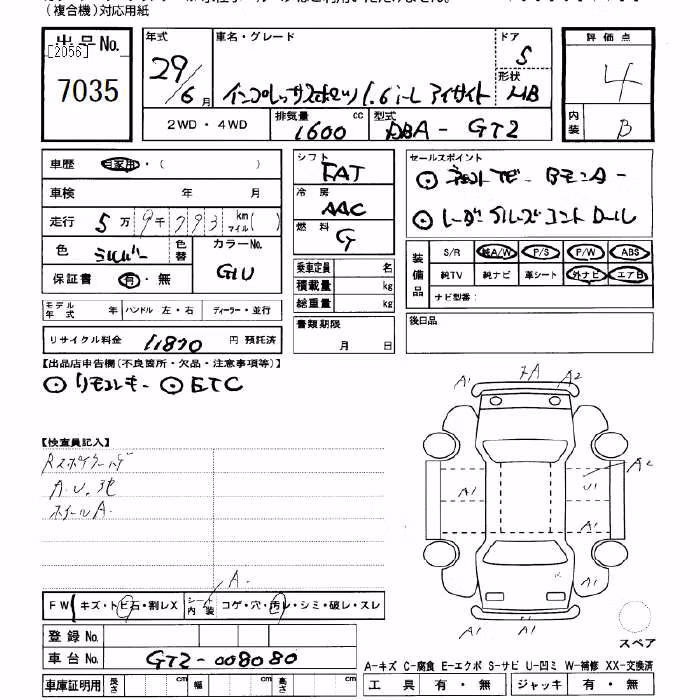 (複合機)対応用紙
出品No.
[2056]
7035
年式
29/6月
車名・グレード
インプレッサスポーツ 1.6i-L アイサイト
ドア
5
形状
HB
評価点
4
内装
B
2WD・4WD
排気量
1600 cc
型式
DBA-GT2
車歴 自家用・( )
車検 年 月
走行 5万9千793 km マイル( )
色 シルバー
色替
カラーNo.
G1U
保証書 有・無
モデル年式 年
ハンドル 左・右
ディーラー・並行
リサイクル料金 11870 円 預託済
シフト
FAT
冷房
AAC
燃料
G
乗車定員 名
積載量 kg
総重量 kg
書類期限
月 日
セールスポイント
装備品
S/R 純A/W P/S P/W ABS
純TV 純ナビ 革シート 外ナビ エアB
ナビ型番:
後日品
【出品店申告欄(不良箇所・欠品・注意事項等)】
リモコンキー ETC
【検査員記入】
A.U.他
ホイールA.
A.
FW キズ・トビ石・割レX
シート内装 コゲ・穴・汚レ・シミ・破レ・スレ
登録No.
車台No. GT2-008080
車庫証明用 長さ cm 幅 cm 高さ cm
A1 7A A2
A1 U1 A2
A1
A1
A1 A1
スペア
A-キズ C-腐食 E-エクボ S-サビ U-凹ミ W-補修 XX-交換済
工具 有・無 ジャッキ 有・無